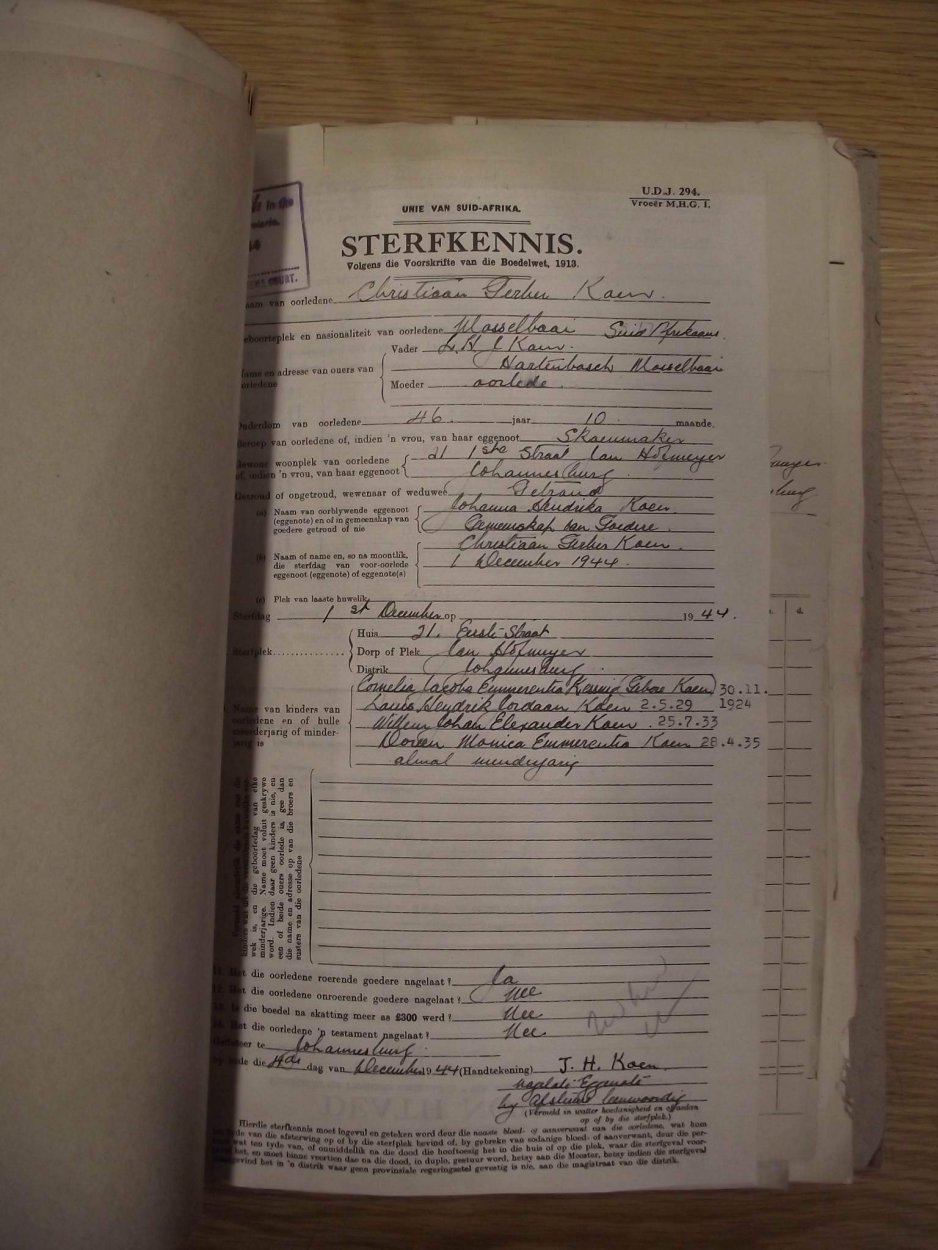 U.D.J. 294.
Vroeër M.H.G. 1.
in the
COURT.
UNIE VAN SUID-AFRIKA.
STERFKENNIS.
Volgens die Voorskrifte van die Boedelwet, 1913.
Naam van oorledene Christiaan Ferber Koen.
Geboorteplek en nasionaliteit van oorledene Mosselbaai Suid Afrikaans.
Vader L. H. J. Koen.
Name en adresse van ouers van oorledene Hartenbosch Mosselbaai
Moeder oorlede.
Ouderdom van oorledene 46. jaar 10. maande.
Beroep van oorledene of, indien 'n vrou, van haar eggenoot Skoenmaker
Gewone woonplek van oorledene 21 1ste Straat Jan Hofmeyer
of, indien 'n vrou, van haar eggenoot Johannesburg.
Getroud of ongetroud, wewenaar of weduwee Getroud
(a) Naam van oorblywende eggenoot Johanna Hendrika Koen
(eggenote) en of in gemeenskap van
goedere getroud of nie Gemeenskap van Goedere.
Christiaan Ferber Koen.
(b) Naam of name en, so na moontlik,
die sterfdag van voor-oorlede 1 December 1944.
eggenoot (eggenote) of eggenote(s)
(c) Plek van laaste huwelik
Sterfdag 1st December op 1944.
Huis 21. Eerste Straat
Sterfplek Dorp of Plek Jan Hofmeyer
Distrik Johannesburg.
Cornelia Jacoba Emmerentia (Gebore Koen) 30.11.
Name van kinders van Louis Hendrik Jordaan Koen 2.5.29 1924
oorledene en of hulle Willem Johan Elexander Koen. 25.7.33
meerderjarig of minder-
jarig is Doreen Monica Emmerentia Koen 28.4.35
almal minderjarig
wek is, en die geboortedag van elke
minderjarige. Name moet voluit geskrywe
word. Indien daar geen kinders is nie, en
een of beide ouers oorlede is, gee dan
die name en adresse op van die broers en
susters van die oorledene
11. Het die oorledene roerende goedere nagelaat? Ja
12. Het die oorledene onroerende goedere nagelaat? Nee
13. Is die boedel na skatting meer as £300 werd? Nee
14. Het die oorledene 'n testament nagelaat? Nee
Gedateer te Johannesburg.
op hede die 4de dag van December 1944 (Handtekening) J. H. Koen.
Nagelate Eggenote
by afsterwe teenwoordig
(Vermeld in watter hoedanigheid en of
op of by die sterfplek.)
Hierdie sterfkennis moet ingevul en geteken word deur die naaste bloed- of aanverwant van die oorledene, wat hom
ten tyde van die afsterwing op of by die sterfplek bevind of, by gebreke van sodanige bloed- of aanverwant, deur die per-
soon wat ten tyde van, of onmiddellik na die dood die hooftoesig het in die huis of op die plek, waar die sterfgeval voor-
geval het, en moet binne veertien dae na die dood, in duplo, gestuur word, hetsy aan die Meester, hetsy indien die sterfgeval
voorgevind het in 'n distrik waar geen provinsiale regeringsetel gevestig is nie, aan die magistraat van die distrik.